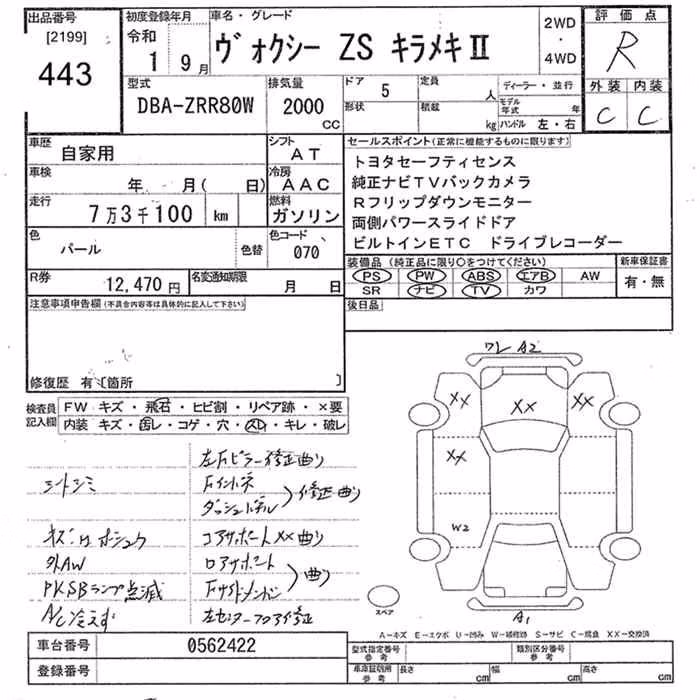 出品番号
[2199]
443
初度登録年月
令和
1 9月
車名・グレード
ヴォクシー ZS キラメキⅡ
2WD
・
4WD
評価点
R
外装 内装
C C
型式
DBA-ZRR80W
排気量
2000
CC
ドア 5
形状
定員 人
積載 kg
ディーラー・並行
モデル年式 年
ハンドル 左・右
車歴
自家用
シフト
AT
車検
年 月( 日)
冷房
AAC
走行
7万3千100 km
燃料
ガソリン
色
パール
色替
色コード
070
R券
12,470円
名変通知期限
月 日
セールスポイント(正常に機能するものに限ります)
トヨタセーフティセンス
純正ナビTVバックカメラ
Rフリップダウンモニター
両側パワースライドドア
ビルトインETC ドライブレコーダー
装備品(純正品に限り○をつけてください)
PS PW ABS エアB AW
SR ナビ TV カワ
新車保証書
有・無
後日品
注意事項申告欄(不具合内容等は具体的に記入して下さい)
修復歴 有〔箇所 〕
検査員
記入欄
FW キズ・飛石・ヒビ割・リペア跡・×要
内装 キズ・ ・コゲ・穴・ ・キレ・破レ
シートシミ
外AW
PKSBランプ点滅
A/C冷えず
左Fピラー修正曲り
Fインナー
ダッシュパネル
修正曲り
コアサポートXX曲り
ロアサポート
Fサイドメンバー
曲り
左センターフロア修正
ワレ A2
XX
XX
XX
XX
W2
A1
スペア
A-キズ E-エクボ U-凹み W-補修跡 S-サビ C-腐食 XX-交換済
車台番号
0562422
登録番号
型式指定番号
参考
類別区分番号
参考
車庫証明用
参考
長さ cm
幅 cm
高さ cm